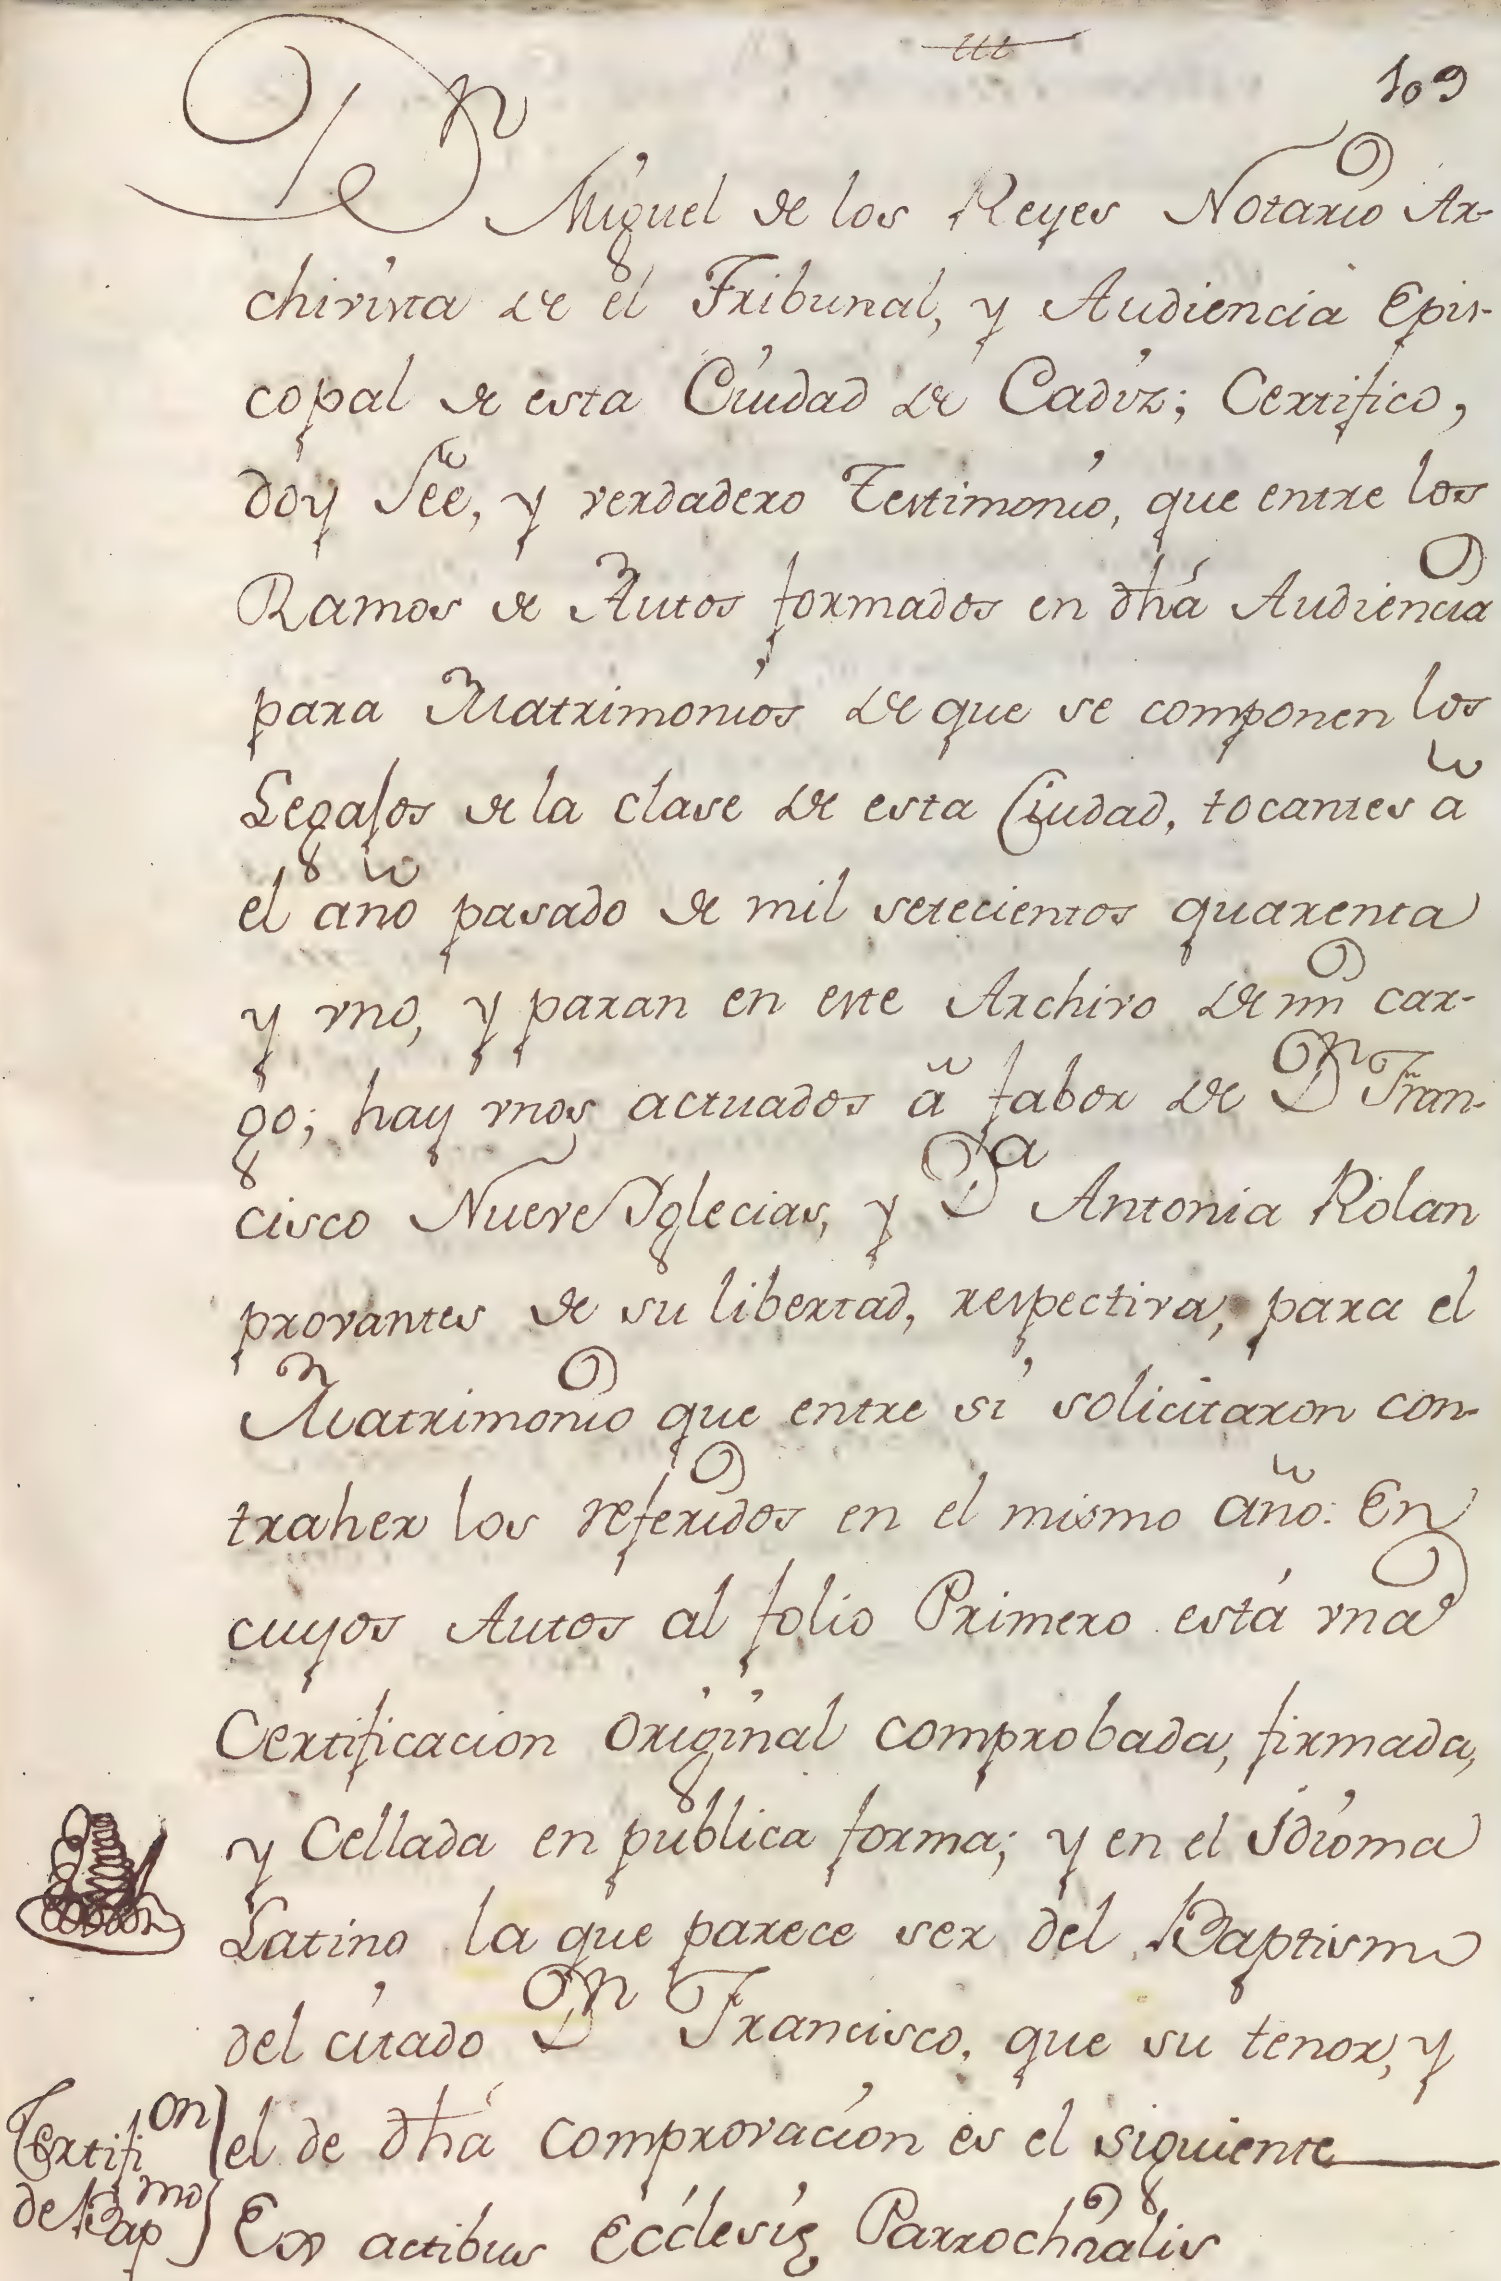 109
Dn Miguel de los Reyes Notario Ar-
chivista de el Tribunal, y Audiencia Epis-
copal de esta Ciudad de Cadiz; Certifico,
doy feè, y verdadero Testimonio, que entre los
Ramos de Autos formados en dhá Audiencia
para Matrimonios de que se componen los
Legajos de la clase de esta Ciudad, tocantes â
el año pasado de mil setecientos quarenta
y vno, y paran en este Archivo de mi car-
go; hay vnos actuados â fabor de Dn Fran-
cisco Nueve Yglecias, y Da Antonia Rolan
provantes de su libertad, respectiva, para el
Matrimonio que entre si solicitaron con-
traher los referidos en el mismo año: En
cuyos Autos al folio Primero está vna
Certificacion original comprobada, firmada,
y Cellada en publica forma; y en el Idioma
Latino la que parece ser del Baptismo
del citado Dn Francisco, que su tenor, y
Certifion
de Bapmo
el de dhá comprovacion es el siguiente
Ex actibus Ecclesię Parrochialis